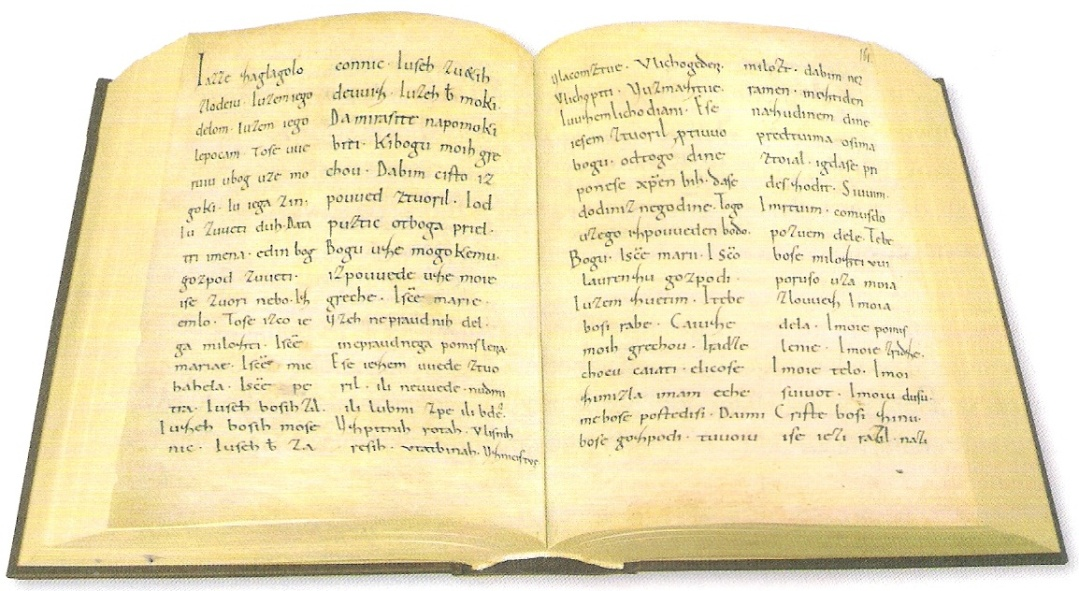 Iazze zaglagolo
zlodeiu. Iuzem iego
delom. Iuzem iego
lepocam. Tose uue
ruiu ubog uze mo
goki. Iu iega zin.
Iu zuueti duh. Data
tri imena. edin bog
gozpod zuueti.
ise zuori nebo. Iz
emlo. Tose izco ie
ga milozti. Iscē
mariae. Iscē mic
hahela. Iscē pe
tra. Iuseh bosih zil.
Iuzeh bosih mose
nic. Iuseh ƀ za
connic. Iuseh zuetih
deuuiz. Iuzeh ƀ moki.
Da mirasite napomoki
biti. Kibogu moih gre
chou. Dabim cisto iz
pouued ztuoril. Iod
puztic otboga priel.
Bogu uze mogokemu.
izpouuede uze moie
greche. Iscē marie.
Vzeh nepraudnih del.
inepraudnega pomislena.
Ese iezem uuede ztuo
ril. ili neuuede. nudmi
ili lubmi zpe ili bdē.
Uzpitnih rotah. Vlisnih
resih. vtatbinah. Vzmicistue
Vlacomztue. Vlichogeden.
Vlichopiti. Vuzmaztue.
Iuuzemlichodiani. Ese
iesem ztuoril ꝓtiuuo
bogu. odtogo dine
ponese xp̄en bih. dase
dodiniz negodine. Togo
uzego izpouueden bodo.
Bogu. Iscē marii. Iscō
laurenzu gozpodi.
Iuzem zuetim. Itebe
bosi rabe. Caiuze
moih grechou. Iradze
chocu caiati. elicose
zumizla imam eche
mebose postedisi. Daimi
bose gozpodi. tuuoiu
milozt. dabim nez
ramen. ineztiden
nazudinem dine
predtuima osima
ztoial. igdase pri
des zodit. Siuuim.
Imrtuim. comusdo
pozuem dele. Tebe
bose milostiuui
poruso uza moia
zlouueza. Imoia
dela. Imoie pomis
lenie. Imoie zridze.
Imoie telo. Imoi
siuuot. Imoiu dusu.
Criste bosi zinu.
ise iezi razil. nazi